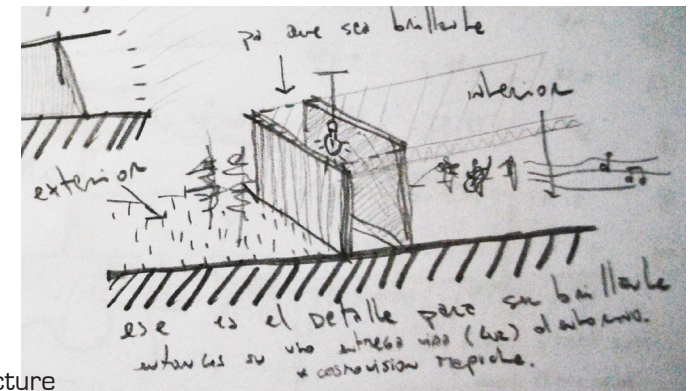 pa que sea brillante
interior
exterior
ese es el Detalle para ser brillante
entonces su uso entrega vida (luz) al entorno.
* cosmovision mapuche.
cture